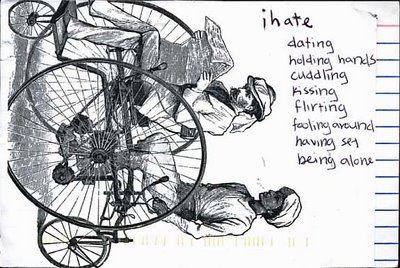 i hate
dating
holding hands
cuddling
kissing
flirting
fooling around
having sex
being alone